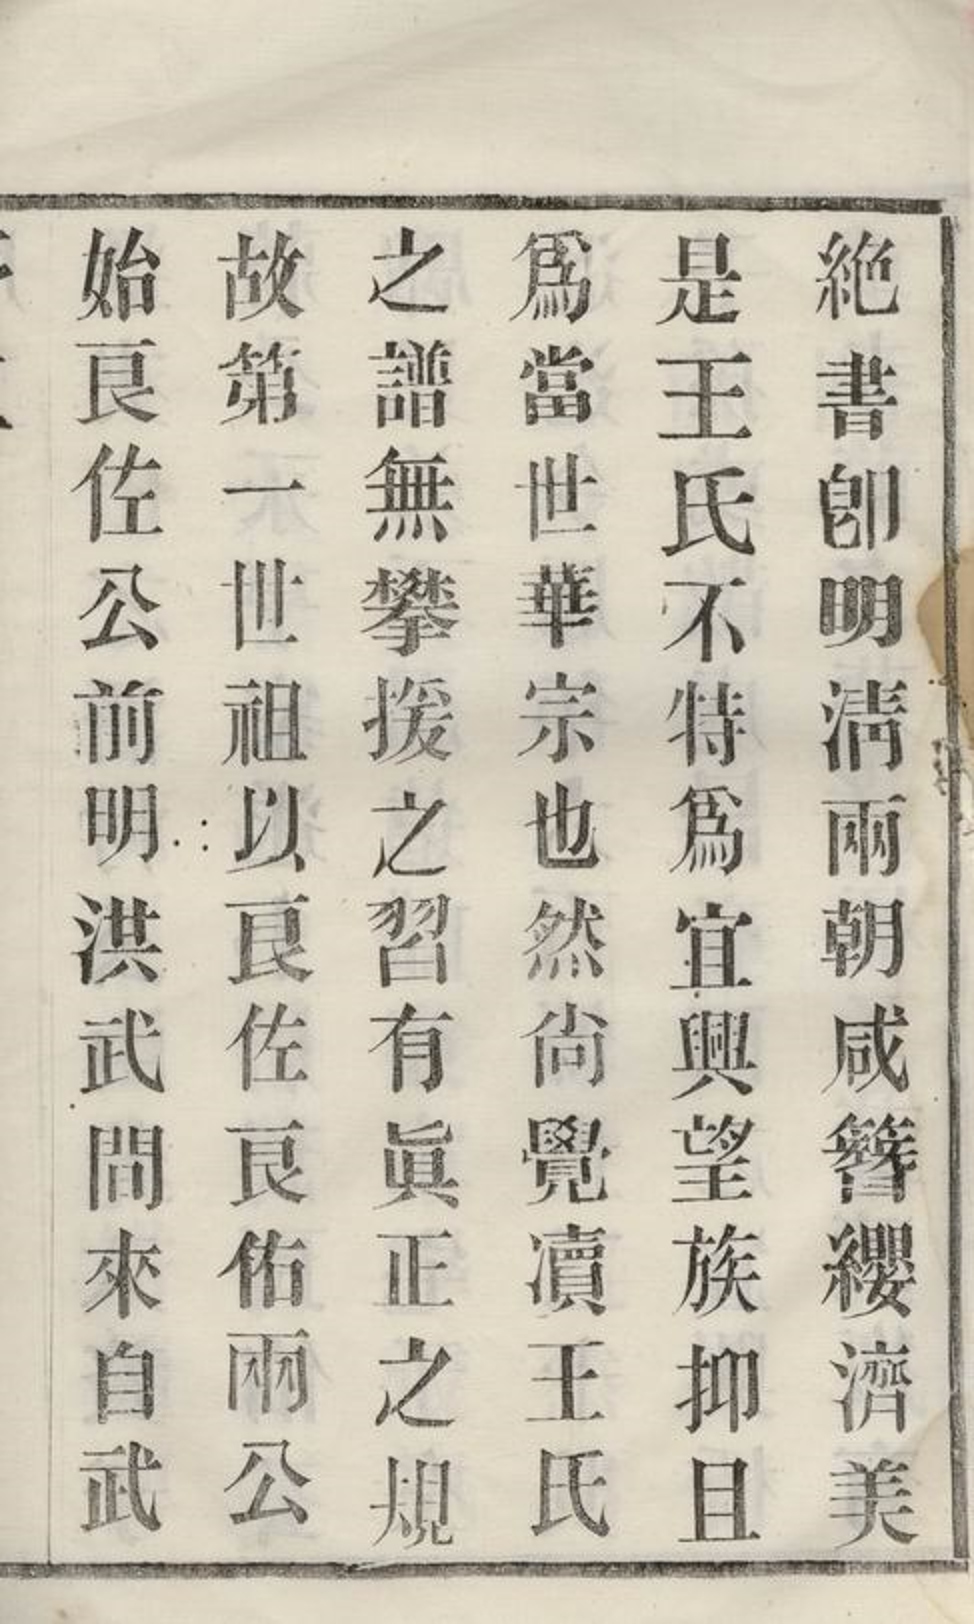 絶書卽明淸兩朝咸簪纓濟美
是王氏不特爲宜興望族抑且
爲當世華宗也然尙覺凟王氏
之譜無攀援之習有眞正之規
故第一世祖以良佐良佑兩公
始良佐公前明洪武間來自武